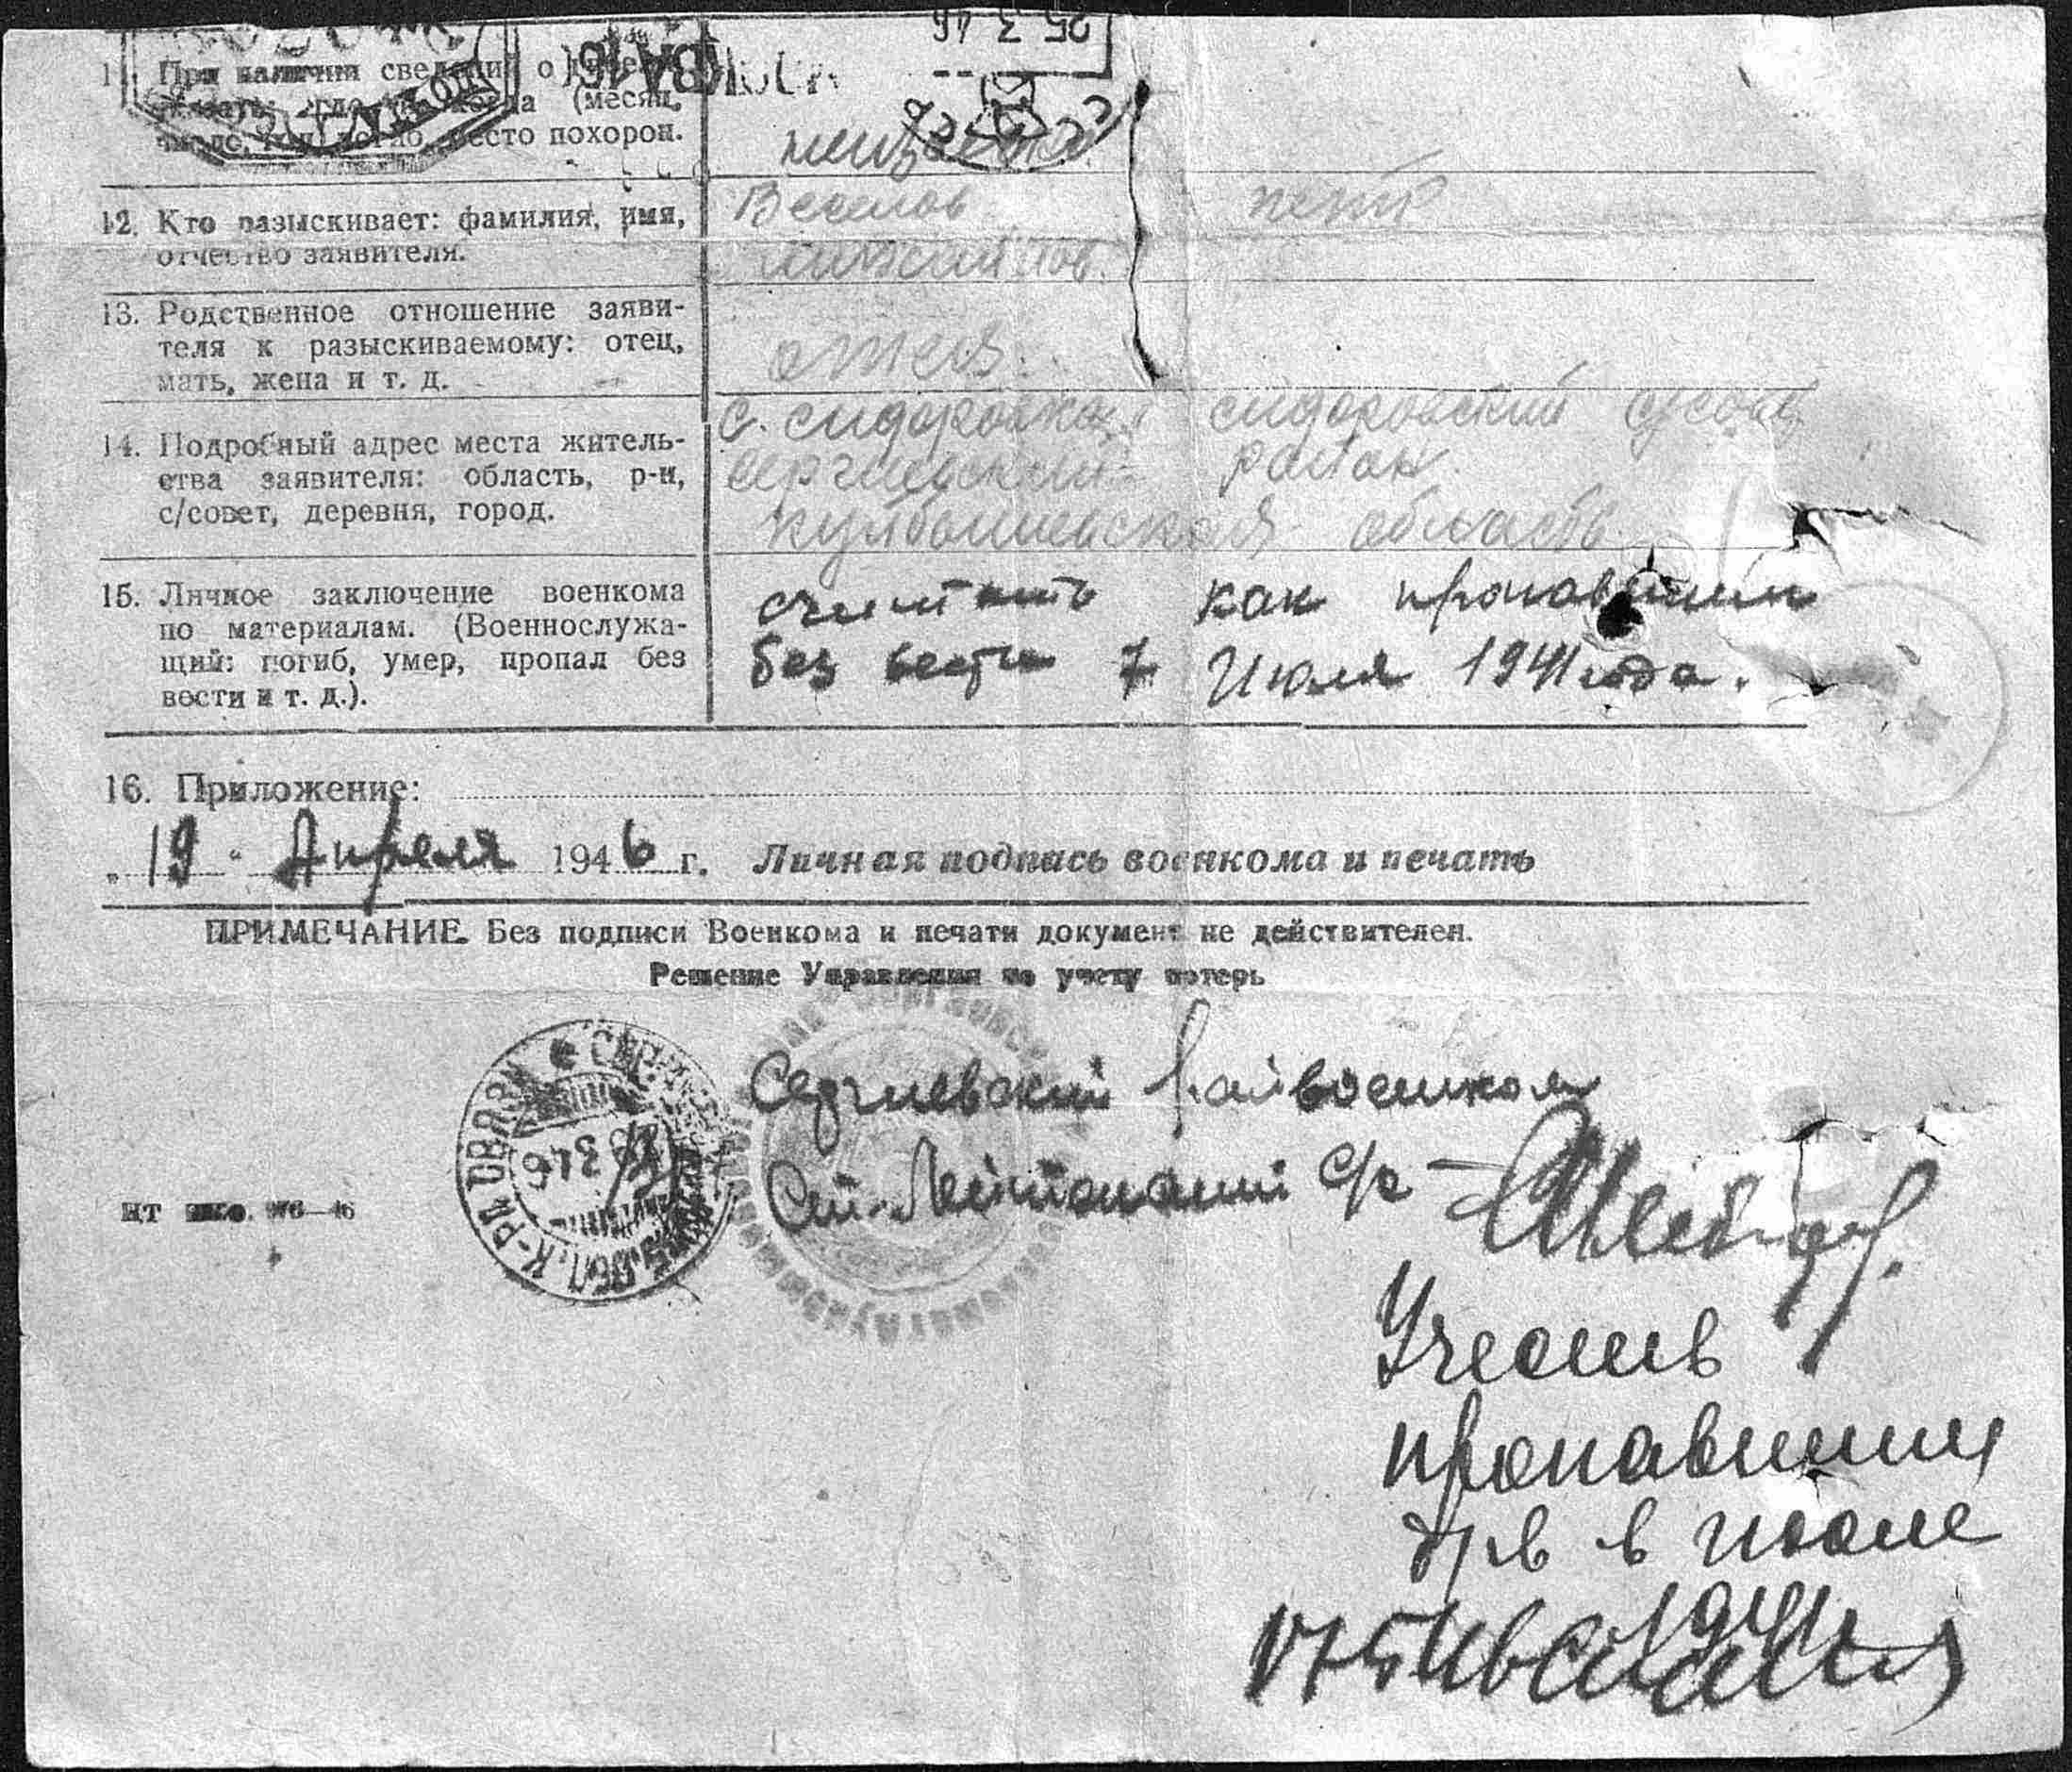 25 3 46
11. При наличии сведений о
где и когда (месяц,
место похорон.
неизвестно
12. Кто разыскивает: фамилия, имя,
отчество заявителя.
Веселов Петр
13. Родственное отношение заяви-
теля к разыскиваемому: отец,
мать, жена и т. д.
отец.
14. Подробный адрес места житель-
ства заявителя: область, р-н,
с/совет, деревня, город.
с. сидоровка сидоровский
сергиевский район
область
15. Личное заключение военкома
по материалам. (Военнослужа-
щий: погиб, умер, пропал без
вести и т. д.).
считать как пропавшим
без вести 7 Июля 1941 года.
16. Приложение:
19 Апреля 1946 г. Личная подпись военкома и печать
ПРИМЕЧАНИЕ. Без подписи Военкома и печати документ не действителен.
Решение Управления по учету потерь
Сергиевский Райвоенком
Ст. Лейтенант
Учесть
пропавшим
б/в в июле
1941